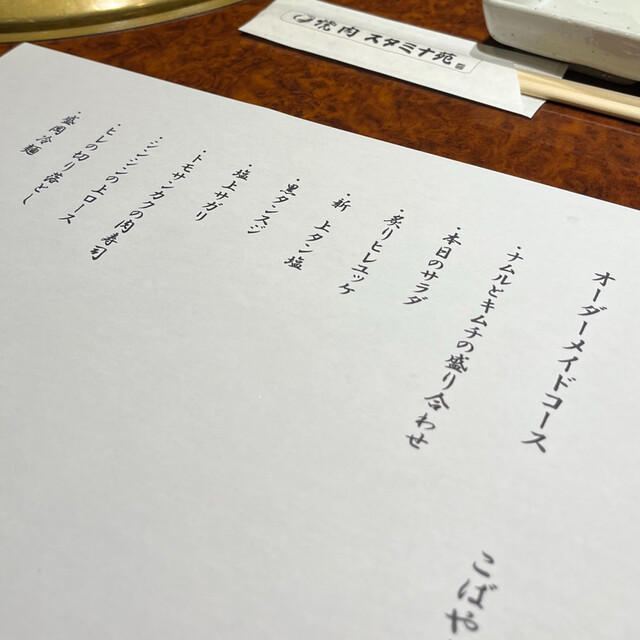 焼肉 スタミナ苑
オーダーメイドコース
・ナムルとキムチの盛り合わせ
・本日のサラダ
・炙りヒレユッケ
・新 上タン塩
・黒タンスジ
・塩上サガリ
・トモサンカクの肉寿司
・シンシンの上ロース
・ヒレの切り落とし
・盛岡冷麺
こばや